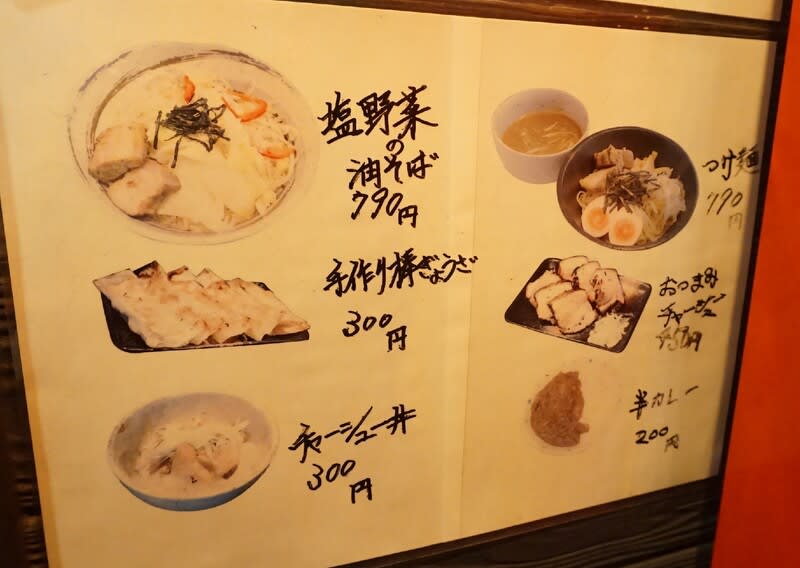 塩野菜
の
油そば
790円
手作り棒ぎょうざ
300円
チャーシュー丼
300円
つけ麺
790円
おつまみ
チャーシュー
円
半カレー
200円